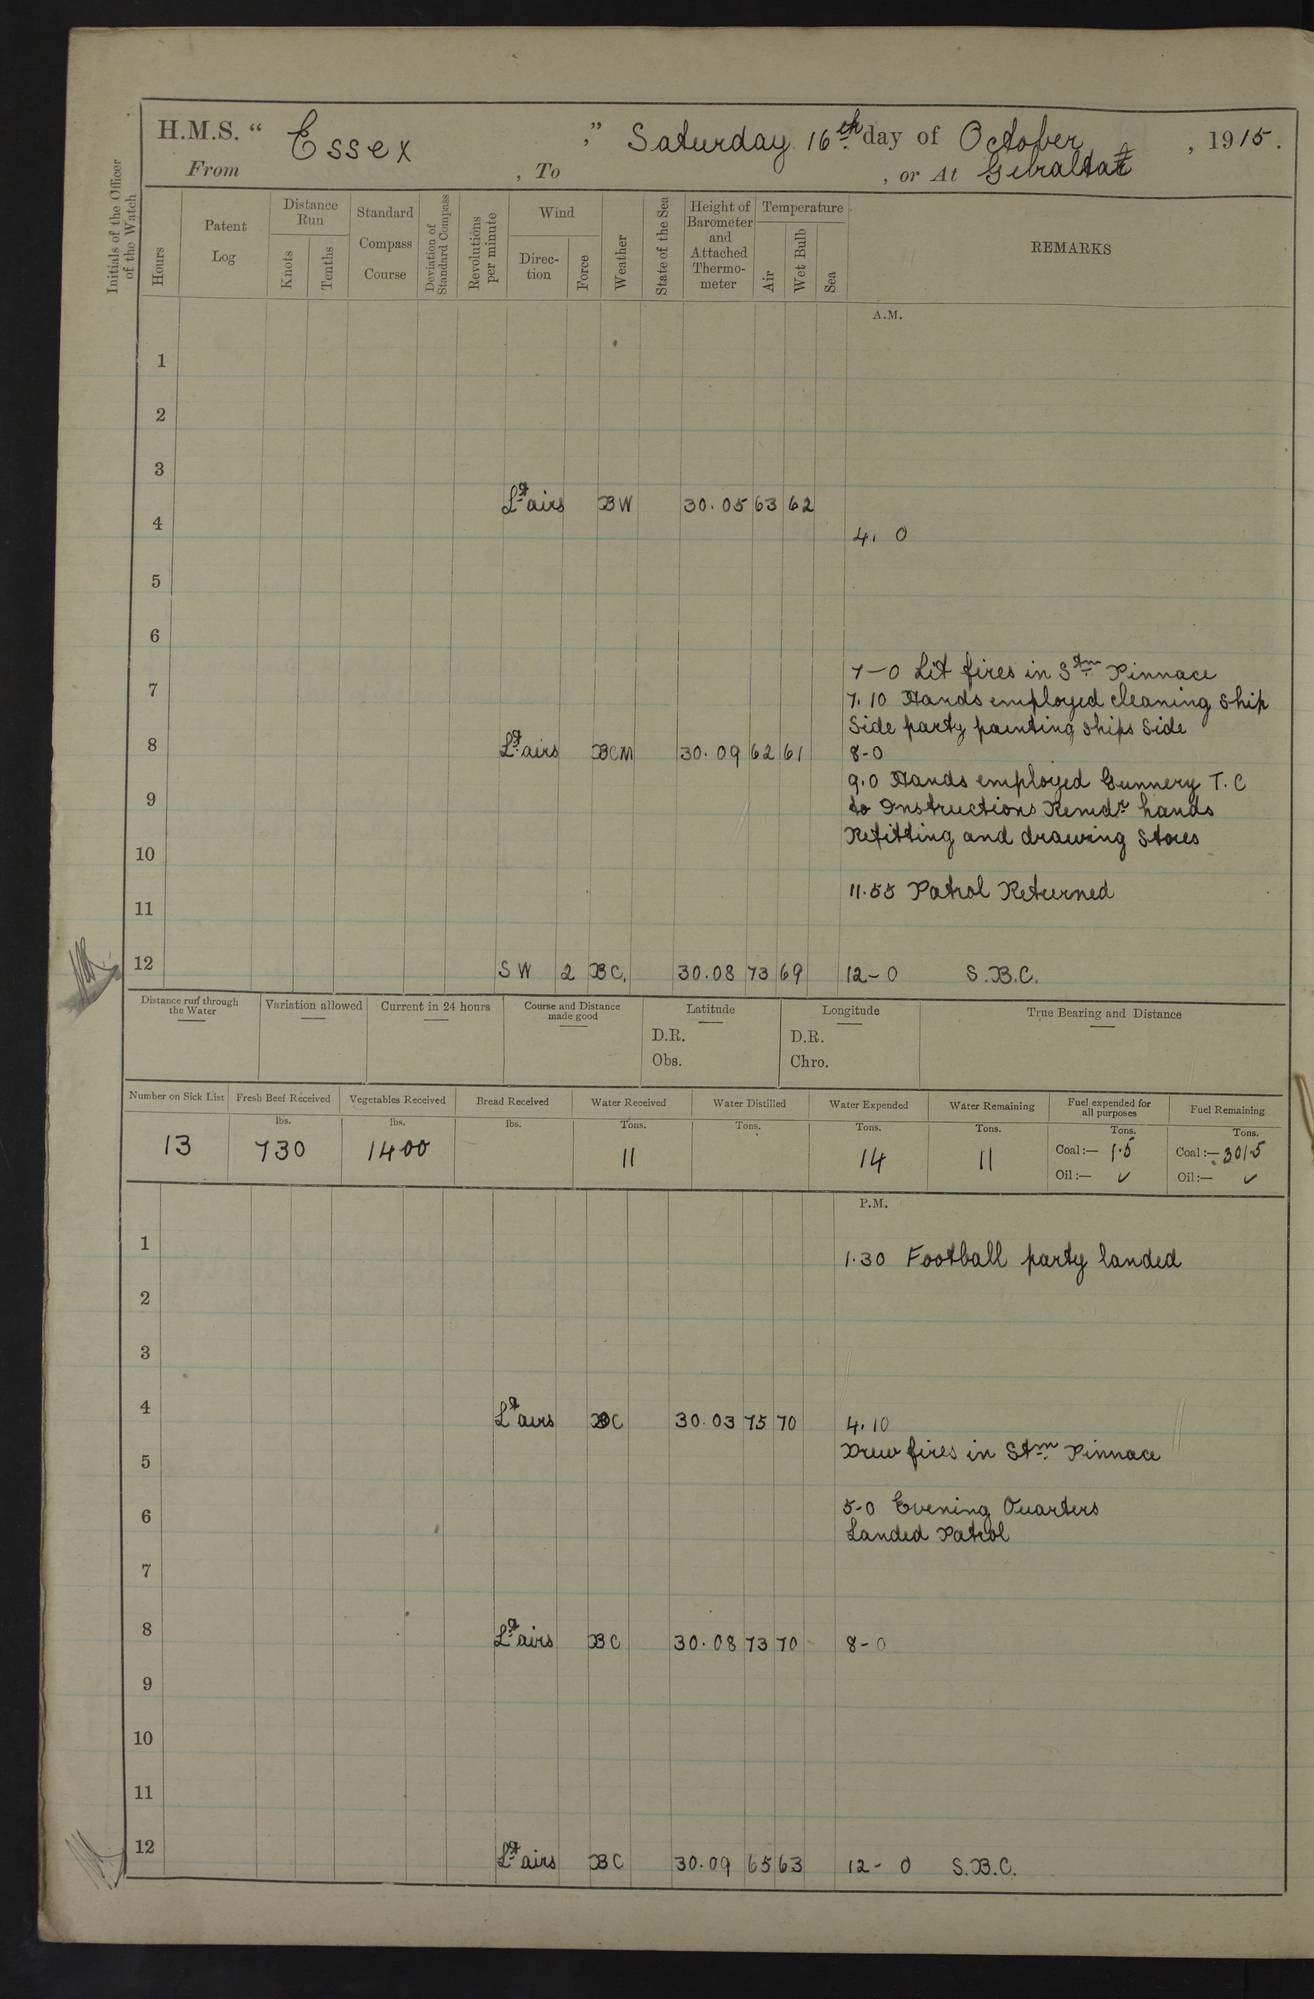 H.M.S. “ Essex ,” Saturday 16th day of October , 1915.
From , To , or At Gibraltar
Initials of the Officer of the Watch
Hours
Patent Log
Distance Run
Knots
Tenths
Standard Compass Course
Deviation of Standard Compass
Revolutions per minute
Wind
Direction
Force
Weather
State of the Sea
Height of Barometer and Attached Thermometer
Temperature
Air
Wet Bulb
Sea
REMARKS
A.M.
1
2
3
Lt airs BW 30.05 63 62
4 4. 0
5
6
7-0 Lit fires in Stm Pinnace
7 7.10 Hands employed cleaning ship
Side party painting ships Side
8 Lt airs BCM 30.09 62 61 8-0
9.0 Hands employed Gunnery T.C
9 to Instructions Remdr hands
Refitting and drawing Stores
10
11.55 Patrol Returned
11
12 SW 2 BC. 30.08 73 69 12-0 S.B.C.
Distance run through the Water
Variation allowed
Current in 24 hours
Course and Distance made good
Latitude
D.R.
Obs.
Longitude
D.R.
Chro.
True Bearing and Distance
Number on Sick List Fresh Beef Received Vegetables Received Bread Received Water Received Water Distilled Water Expended Water Remaining Fuel expended for all purposes Fuel Remaining
lbs. lbs. lbs. Tons. Tons. Tons. Tons. Tons. Tons.
13 730 1400 11 14 11 Coal :— 1.5 Coal :— 301.5
Oil :— ✓ Oil :— ✓
P.M.
1 1.30 Football party landed
2
3
4 Lt airs BC 30.03 75 70 4.10
Drew fires in Stm Pinnace
5
5-0 Evening Quarters
6 Landed Patrol
7
8 Lt airs BC 30.08 73 70 8-0
9
10
11
12 Lt airs BC 30.09 65 63 12- 0 S.B.C.